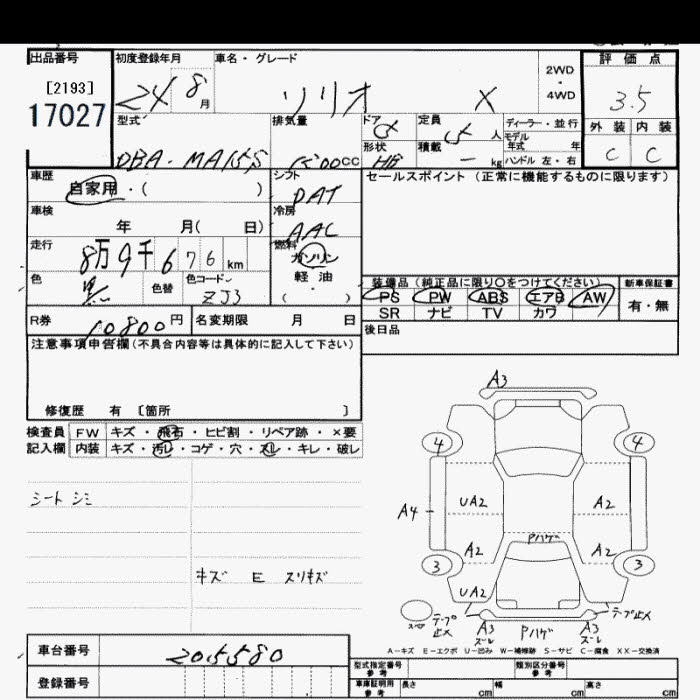 出品番号 初度登録年月 車名・グレード 評価点
[2193]
17027
24 8月 リリオ X 2WD・4WD 3.5
型式 排気量 ドア 定員 ディーラー・並行 外装 内装
モデル年式 年
DBA- 1500cc 形状 HB 積載 - kg ハンドル 左・右 C C
車歴 シフト セールスポイント (正常に機能するものに限ります)
自家用・( ) DAT
車検 冷房
年 月( 日) AAC
走行 燃料
8万9千676km ガソリン
色 色替 色コード 軽油
ZJ3 ( )
装備品(純正品に限り○をつけてください) 新車保証書
PS PW ABS エアB AW 有・無
SR ナビ TV カワ
R券 10800円 名変期限 月 日
後日品
注意事項申告欄(不具合内容等は具体的に記入して下さい)
修復歴 有 [箇所 ]
検査員 FW キズ・飛石・ヒビ割・リペア跡・×要
記入欄 内装 キズ・汚レ・コゲ・穴・スレ・キレ・破レ
シート シミ
キズ E スリキズ
A3
4 4
A4 UA2 A2
Pハゲ
A2 A2
3 3
UA2
テープ止メ A3 ズレ Pハゲ A3 ズレ テープ止メ
A-キズ E-エクボ U-凹み W-補修跡 S-サビ C-腐食 XX-交換済
車台番号 205580
登録番号
型式指定番号 参考 類別区分番号 参考
車庫証明用 参考 長さ cm 幅 cm 高さ cm